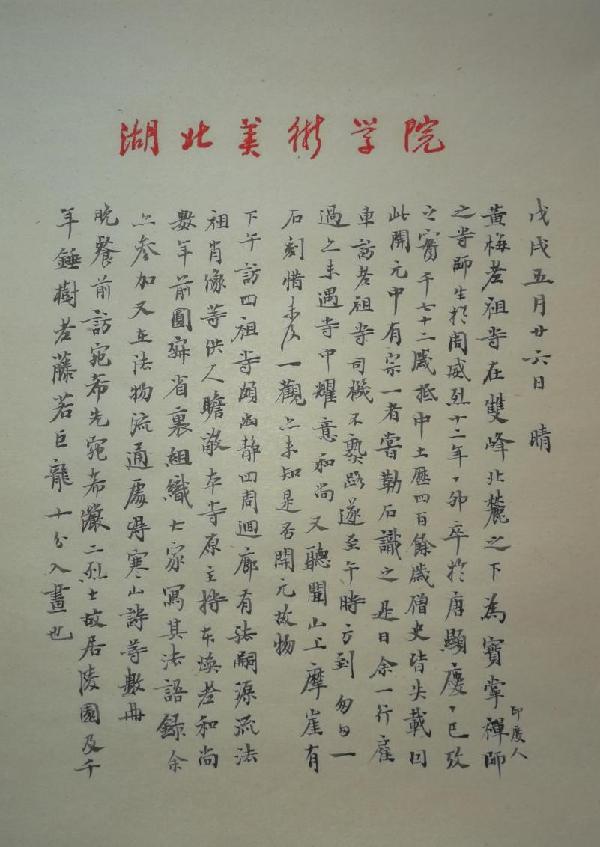 湖北美術学院
戊戌五月廿六日 晴
黃梅老祖寺在雙峰北麓之下為寶掌禪師
印度人
之寺師生於周威烈十二年,卯卒於唐顯慶,已攷
之實千七十二歲抵中土歷四百餘歲僧史皆失載因
此開元中有宗一者嘗勒石識之 是日余一行雇
車訪老祖寺司機不熟路遂至午時方到 匆匆一
過之未遇寺中耀意和尚 又聽聞山上摩崖有
石刻惜未及一觀亦未知是否開元故物
下午訪四祖寺頗幽静四周迴廊有法嗣源流法
祖肖像等供人瞻敬本寺原主持本煥老和尚
數年前圓寂省裏組織七家寫其法語録余
亦参加又在法物流通處得寒山詩等數冊
晚餐前訪宛希先宛希儼二烈士故居陵園及千
年錘樹老藤若巨龍十分入畫也